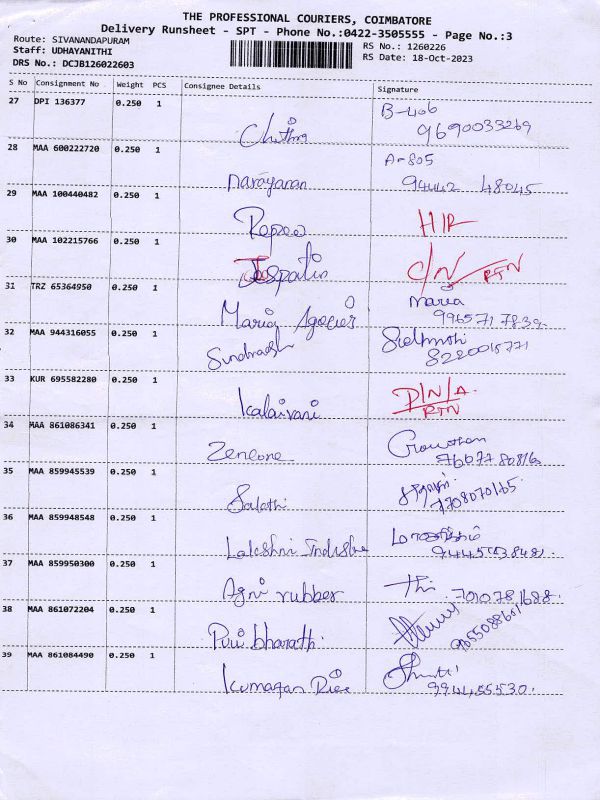 THE PROFESSIONAL COURIERS, COIMBATORE
Delivery Runsheet - SPT - Phone No.:0422-3505555 - Page No.:3
Route: SIVANANDAPURAM
Staff: UDHAYANITHI RS No.: 1260226
DRS No.: DCJB126022603 RS Date: 18-Oct-2023
S No Consignment No Weight PCS Consignee Details Signature
27 DPI 136377 0.250 1 B-406
Chithra 9690033269
28 MAA 600222720 0.250 1 A-805
Narayanan 94442 48045
29 MAA 100440482 0.250 1
30 MAA 102215766 0.250 1
C/N RTN
31 TRZ 65364950 0.250 1 maria
Maria Agencies 996571 7839
32 MAA 944316055 0.250 1
8220015771
33 KUR 695582280 0.250 1
Kalaivani D/N/A.
RTN
34 MAA 861086341 0.250 1 Gowtham
Zeneone 7607780816
35 MAA 859945539 0.250 1
7708070165.
36 MAA 859948548 0.250 1
Lakshmi
37 MAA 859950300 0.250 1
Agni rubber 7010781688.
38 MAA 861072204 0.250 1
bharathi 9055088601
39 MAA 861084490 0.250 1
Kumaran 994455530.